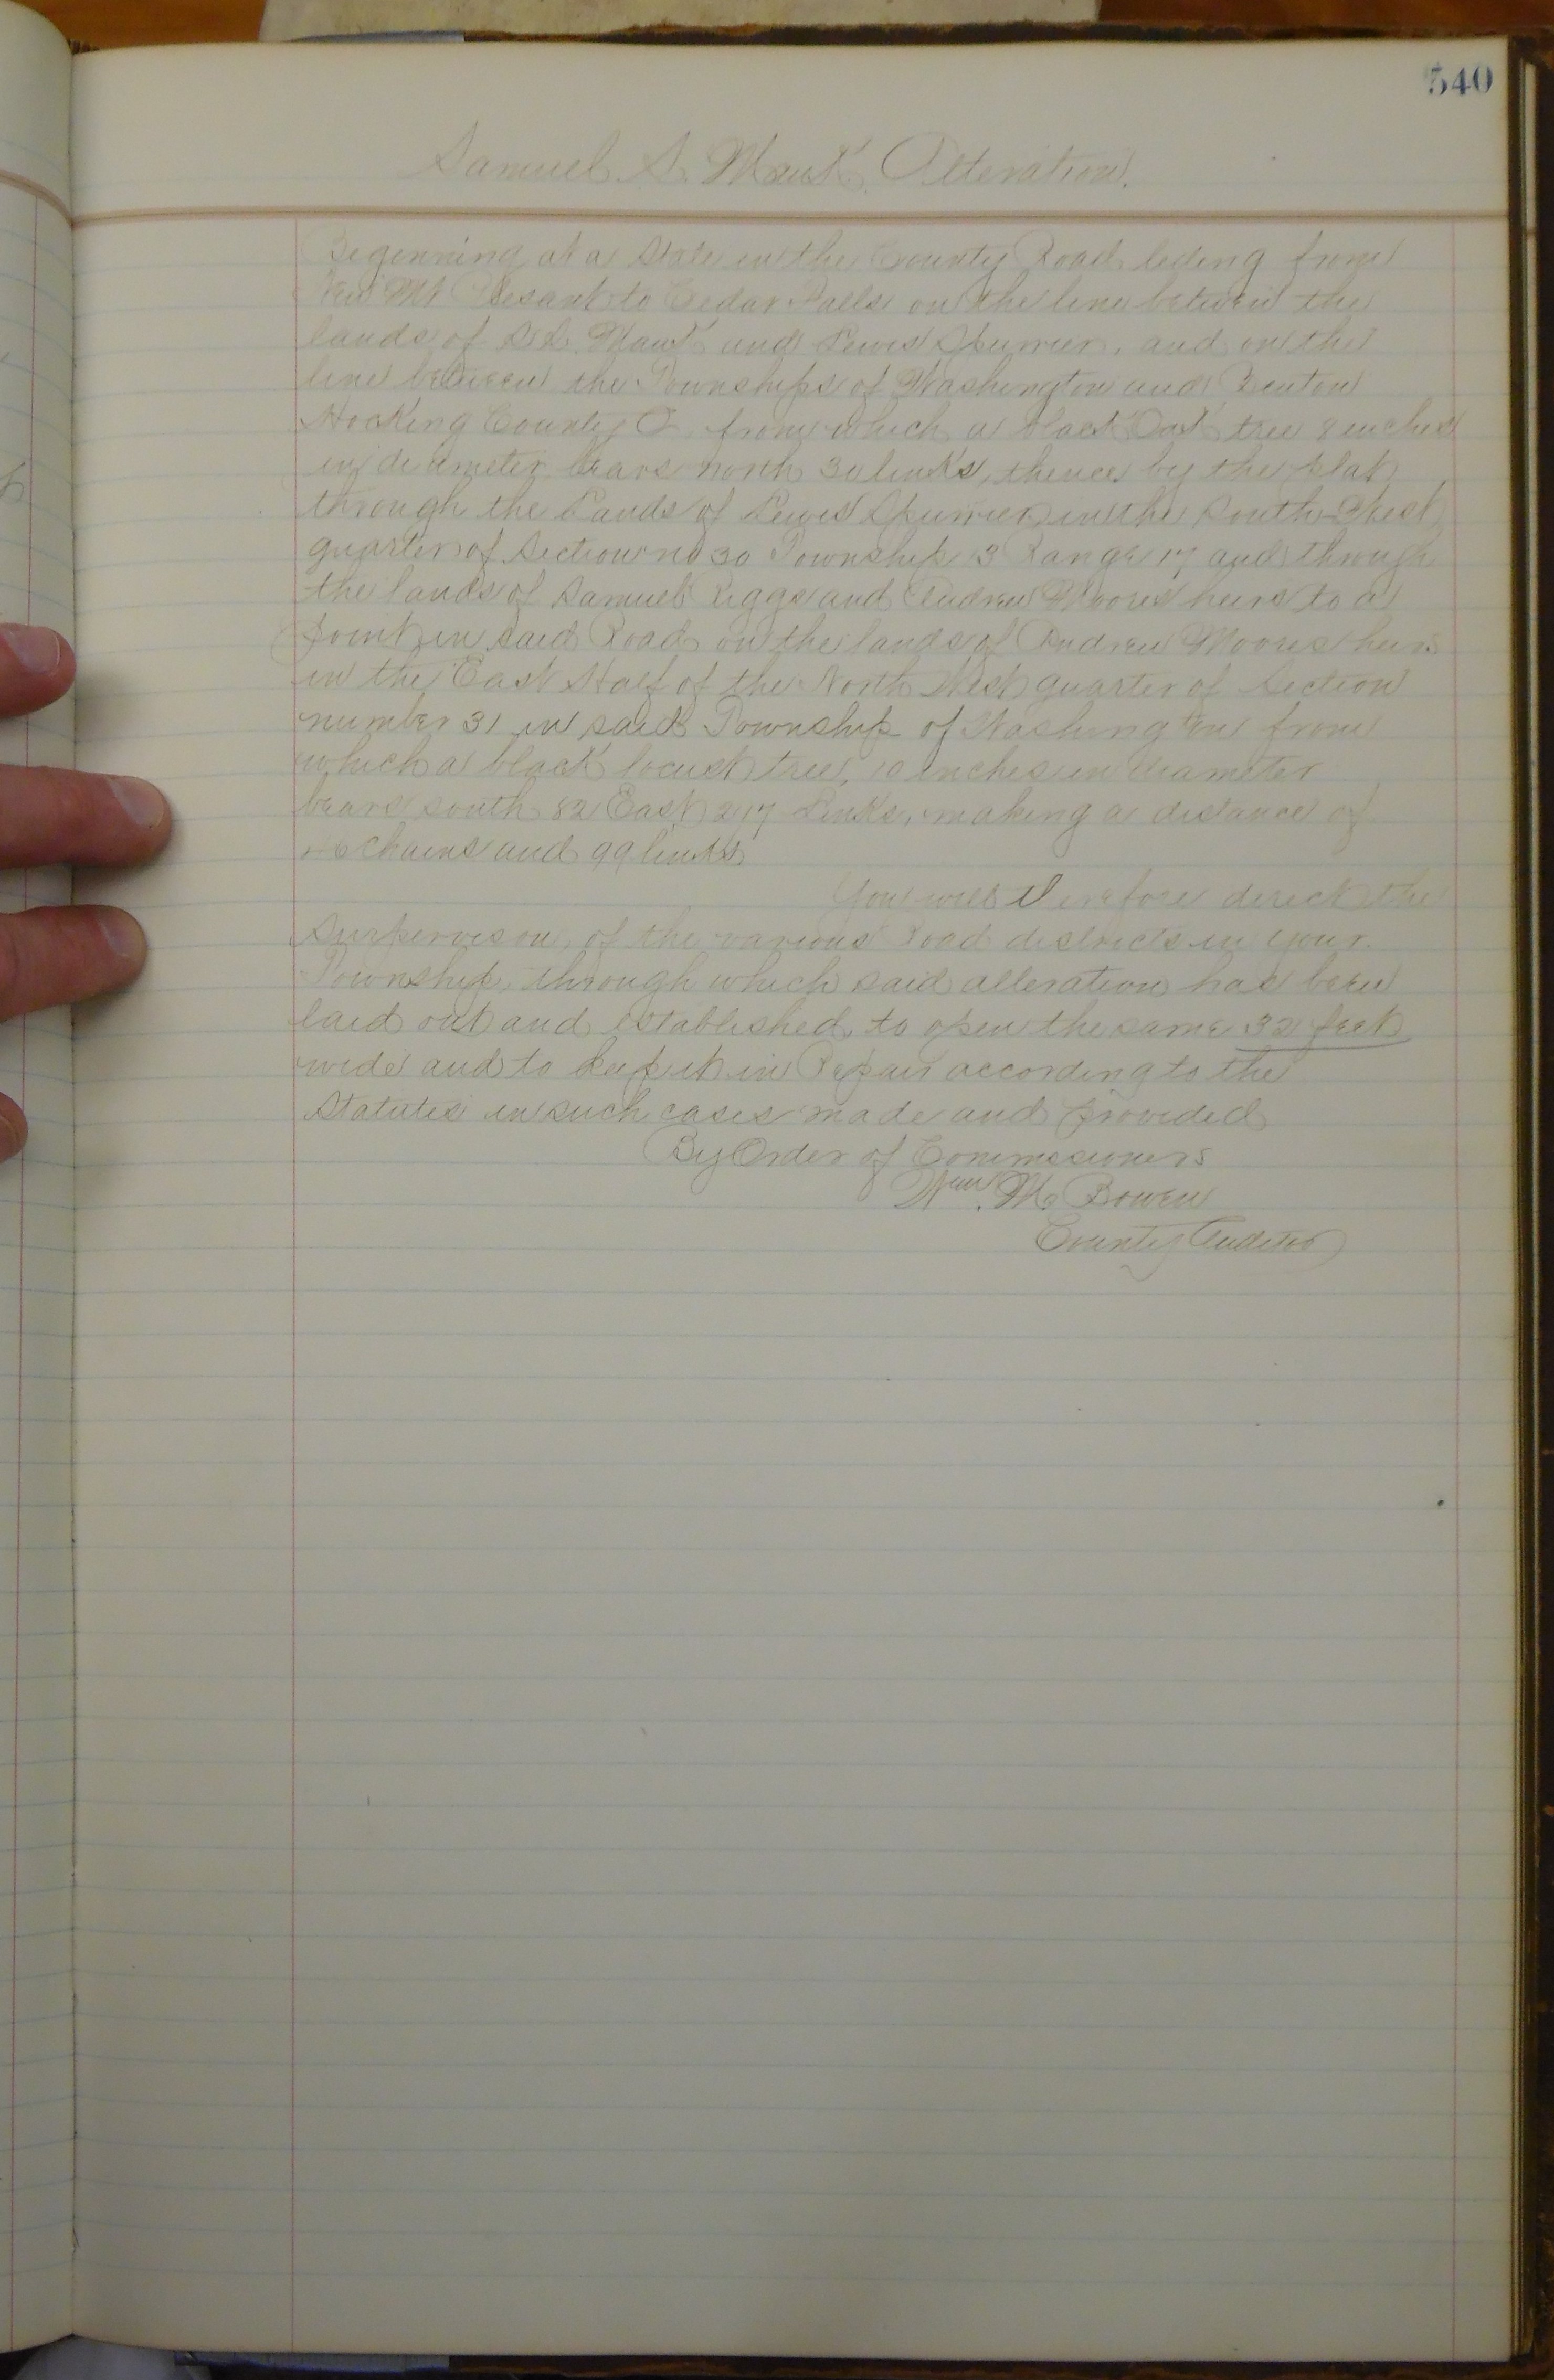 540
Samuel S. Mauk Alteration.
Beginning at a Stake in the County Road leding from
New Mt Plesant to Cedar Falls on the line between the
lands of S.S. Mauk and Lewis Spurrier, and on the
line between the Townships of Washington and Benton
Hocking County O. from which a black Oak tree 8 inches
in diameter bears north 30 links, thence by the plat
through the Lands of Lewis Spurrier in the South West
quarter of Section no 30 Township 13 Range 17 and through
the lands of Samuel Riggs and Andrew Moores heirs to a
point in said Road on the lands of Andrew Moores heirs
in the East Half of the North West quarter of Section
number 31 in said Township of Washington from
which a black locust tree, 10 inches in diameter
bears south 82 East 217 Links, making a distance of
chains and 99 links
You will therefore direct the
of the various Road districts in your
Township, through which said alteration has been
laid out and established, to open the same 32 feet
wide and to keep it in Repair according to the
Statutes in such cases made and provided
By Order of Commissioners
Wm. M. Bowen
County Auditor